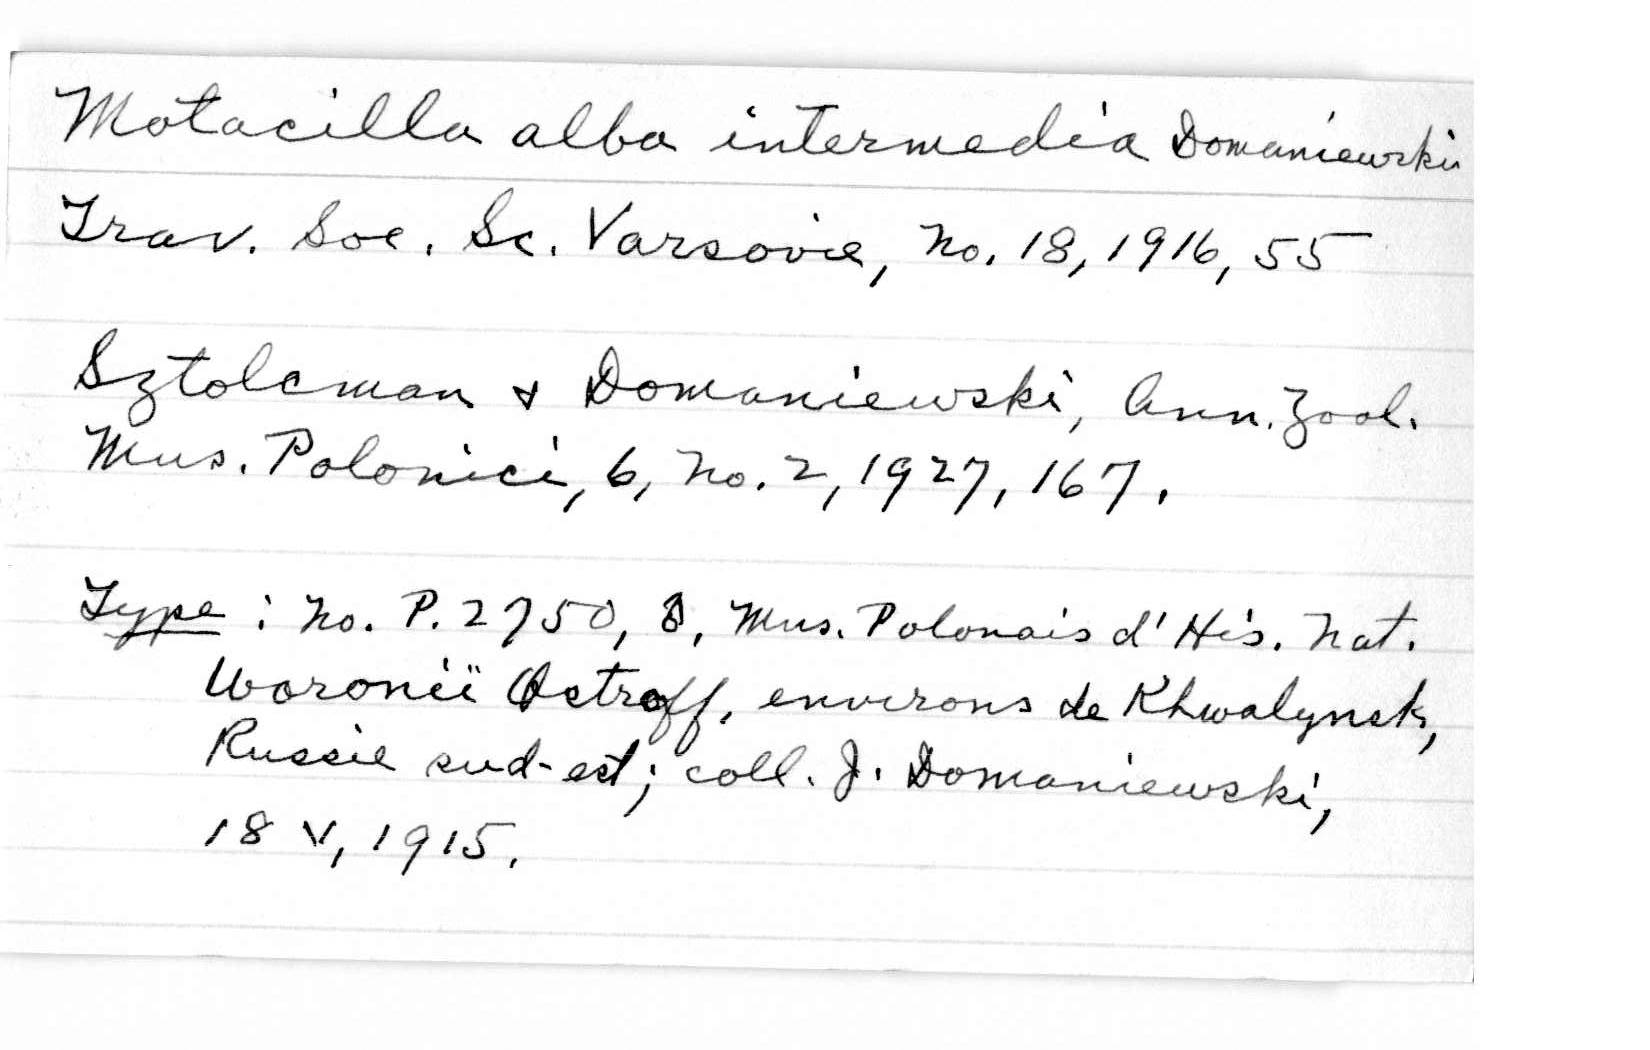 Motacilla alba intermedia Domaniewski
Trav. Soc. Sc. Varsovie, No. 18, 1916, 55
Sztolcman & Domaniewski, Ann. Zool.
Mus. Polonici, 6, No. 2, 1927, 167.
Type : No. P. 2750, ♂, Mus. Polonais d'His. Nat.
Woroniï Ostroff, environs de Khwalynsk,
Russie sud-est; coll. J. Domaniewski,
18 V, 1915.